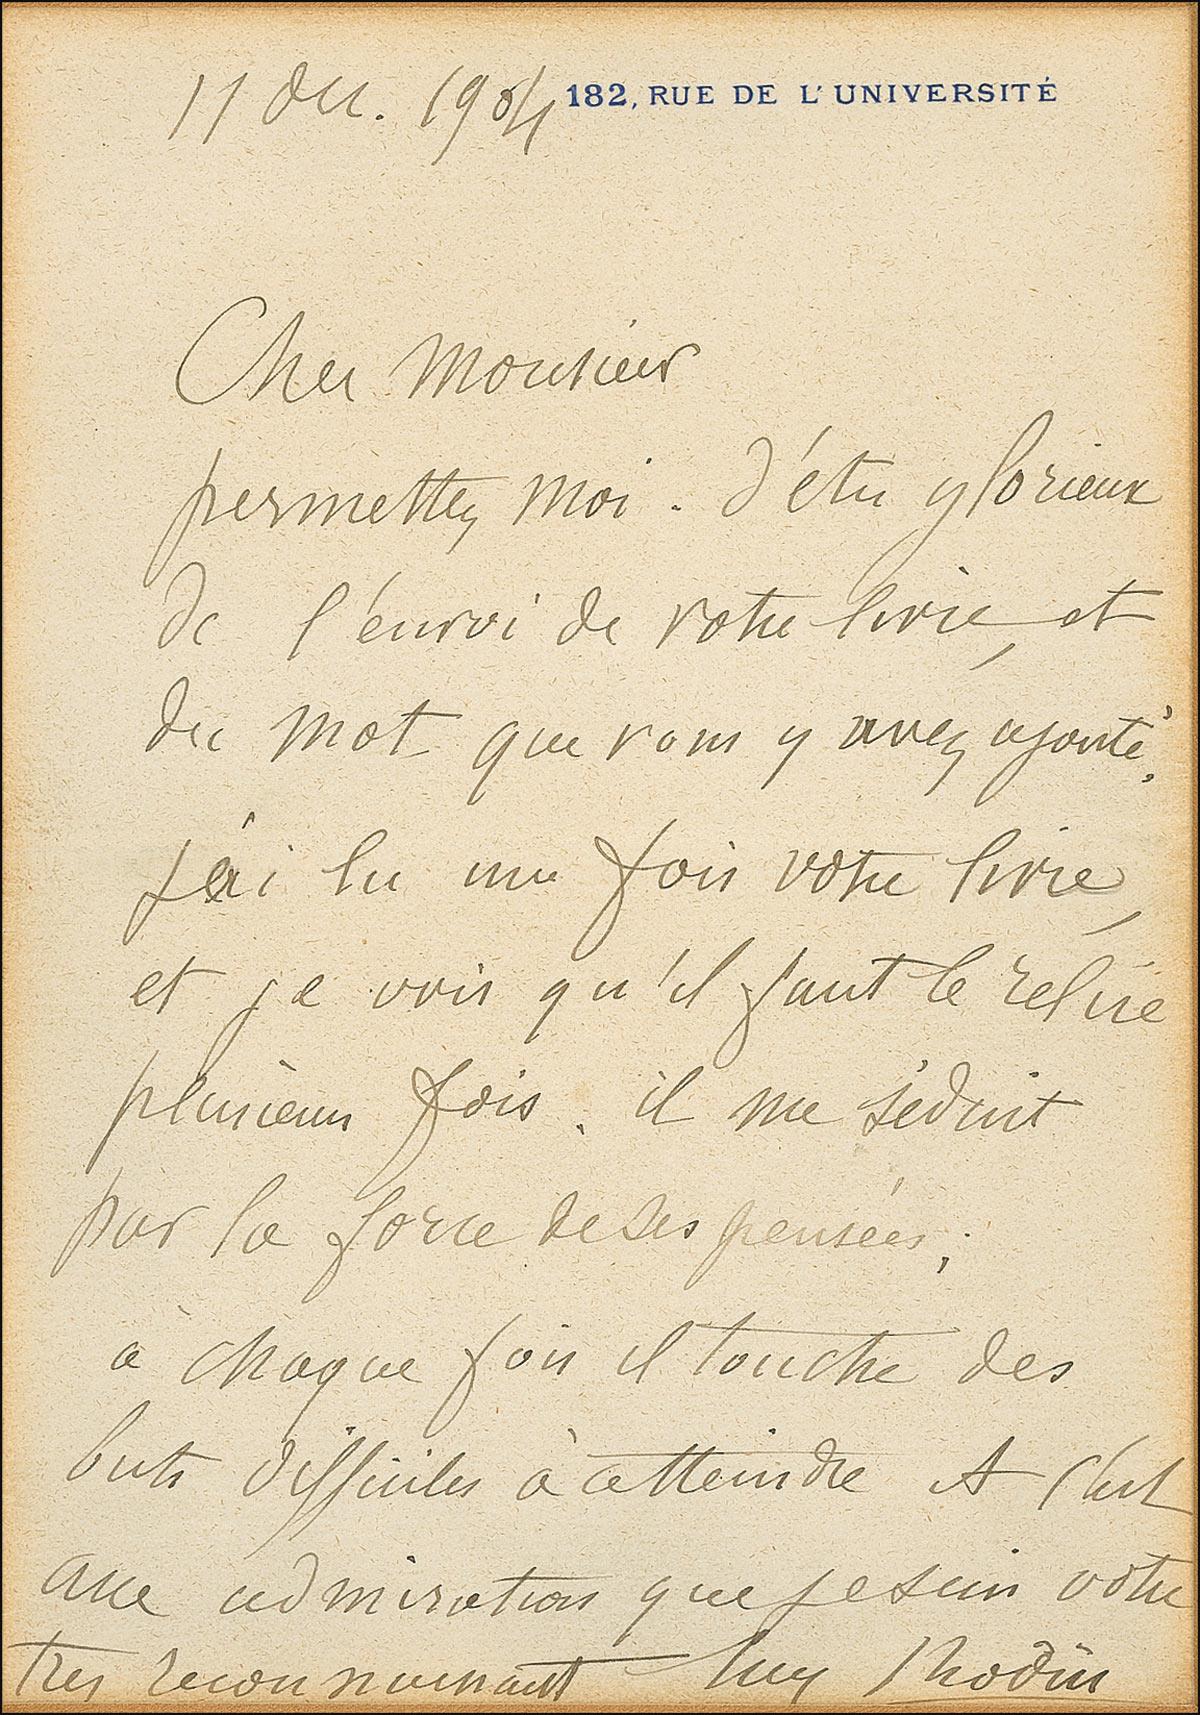 11 Dec. 1904 182, RUE DE L'UNIVERSITÉ
Cher Monsieur
permettez moi . d'être glorieux
de l'envoi de votre livre, et
du mot que vous y avez ajouté,
j'ai lu une fois votre livre,
et je vois qu'il faut le relire
plusieurs fois. il me séduit
par la force de ses pensées;
à chaque fois il touche des
buts difficiles à atteindre et c'est
avec admiration que je suis votre
très reconnaissant Aug Rodin